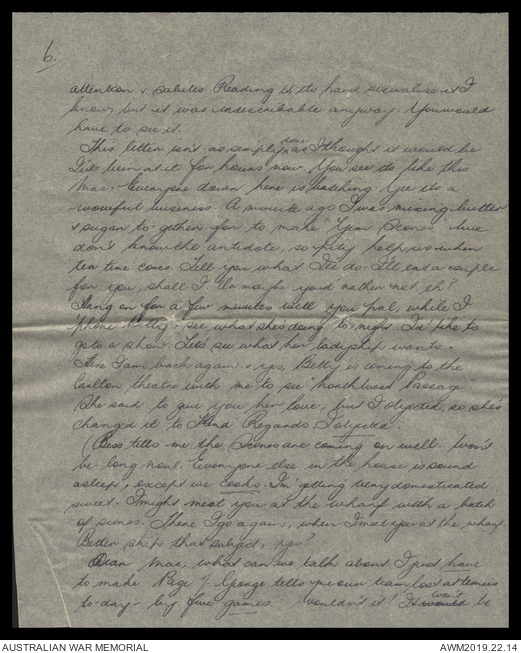 6.
attention & salutes. Reading it its hard visualise it I
know, but it was indescribable anyway. You would
have to see it.
This letter isn't as simply done as I thought it would be
I've been at it for hours now. You see its like this
Mac. Everyone down here is batching. Yes its a
woeful business. A minute ago I was mixing butter
& sugar to-gether for to make "Gem Scones" &
don't know the antidote, so pity help us when
tea time comes. Tell you what I'll do. I'll eat a couple
for you, shall I. Or maybe you'd rather not eh?
Hang on for a few minutes will you pal, while I
'phone Betty & see what she's doing to-night. I'd like to
go to a show. Lets see what her ladyship wants.
Here I am back again & yes, Betty is coming to the
Carlton theatre with me to see "Northwest Passage."
She said to give you her love, but I objected, so she's
changed it to Kind Regards. I objected
(Bess tells me the Scones are coming on well. Won't
be long now. Everyone else in the house is sound
asleep, except we Cooks. I'm getting very domesticated
sweet. I might meet you at the wharf with a batch
of scones. There I go again, when I meet you at the wharf
Better skip that subject, yes?
Dear Mac, what can we talk about I just have
to make Page 7. George tells me our team lost at tennis
to-day - by five games. Wouldn't it! It would won't be
AUSTRALIAN WAR MEMORIAL
AWM2019.22.14